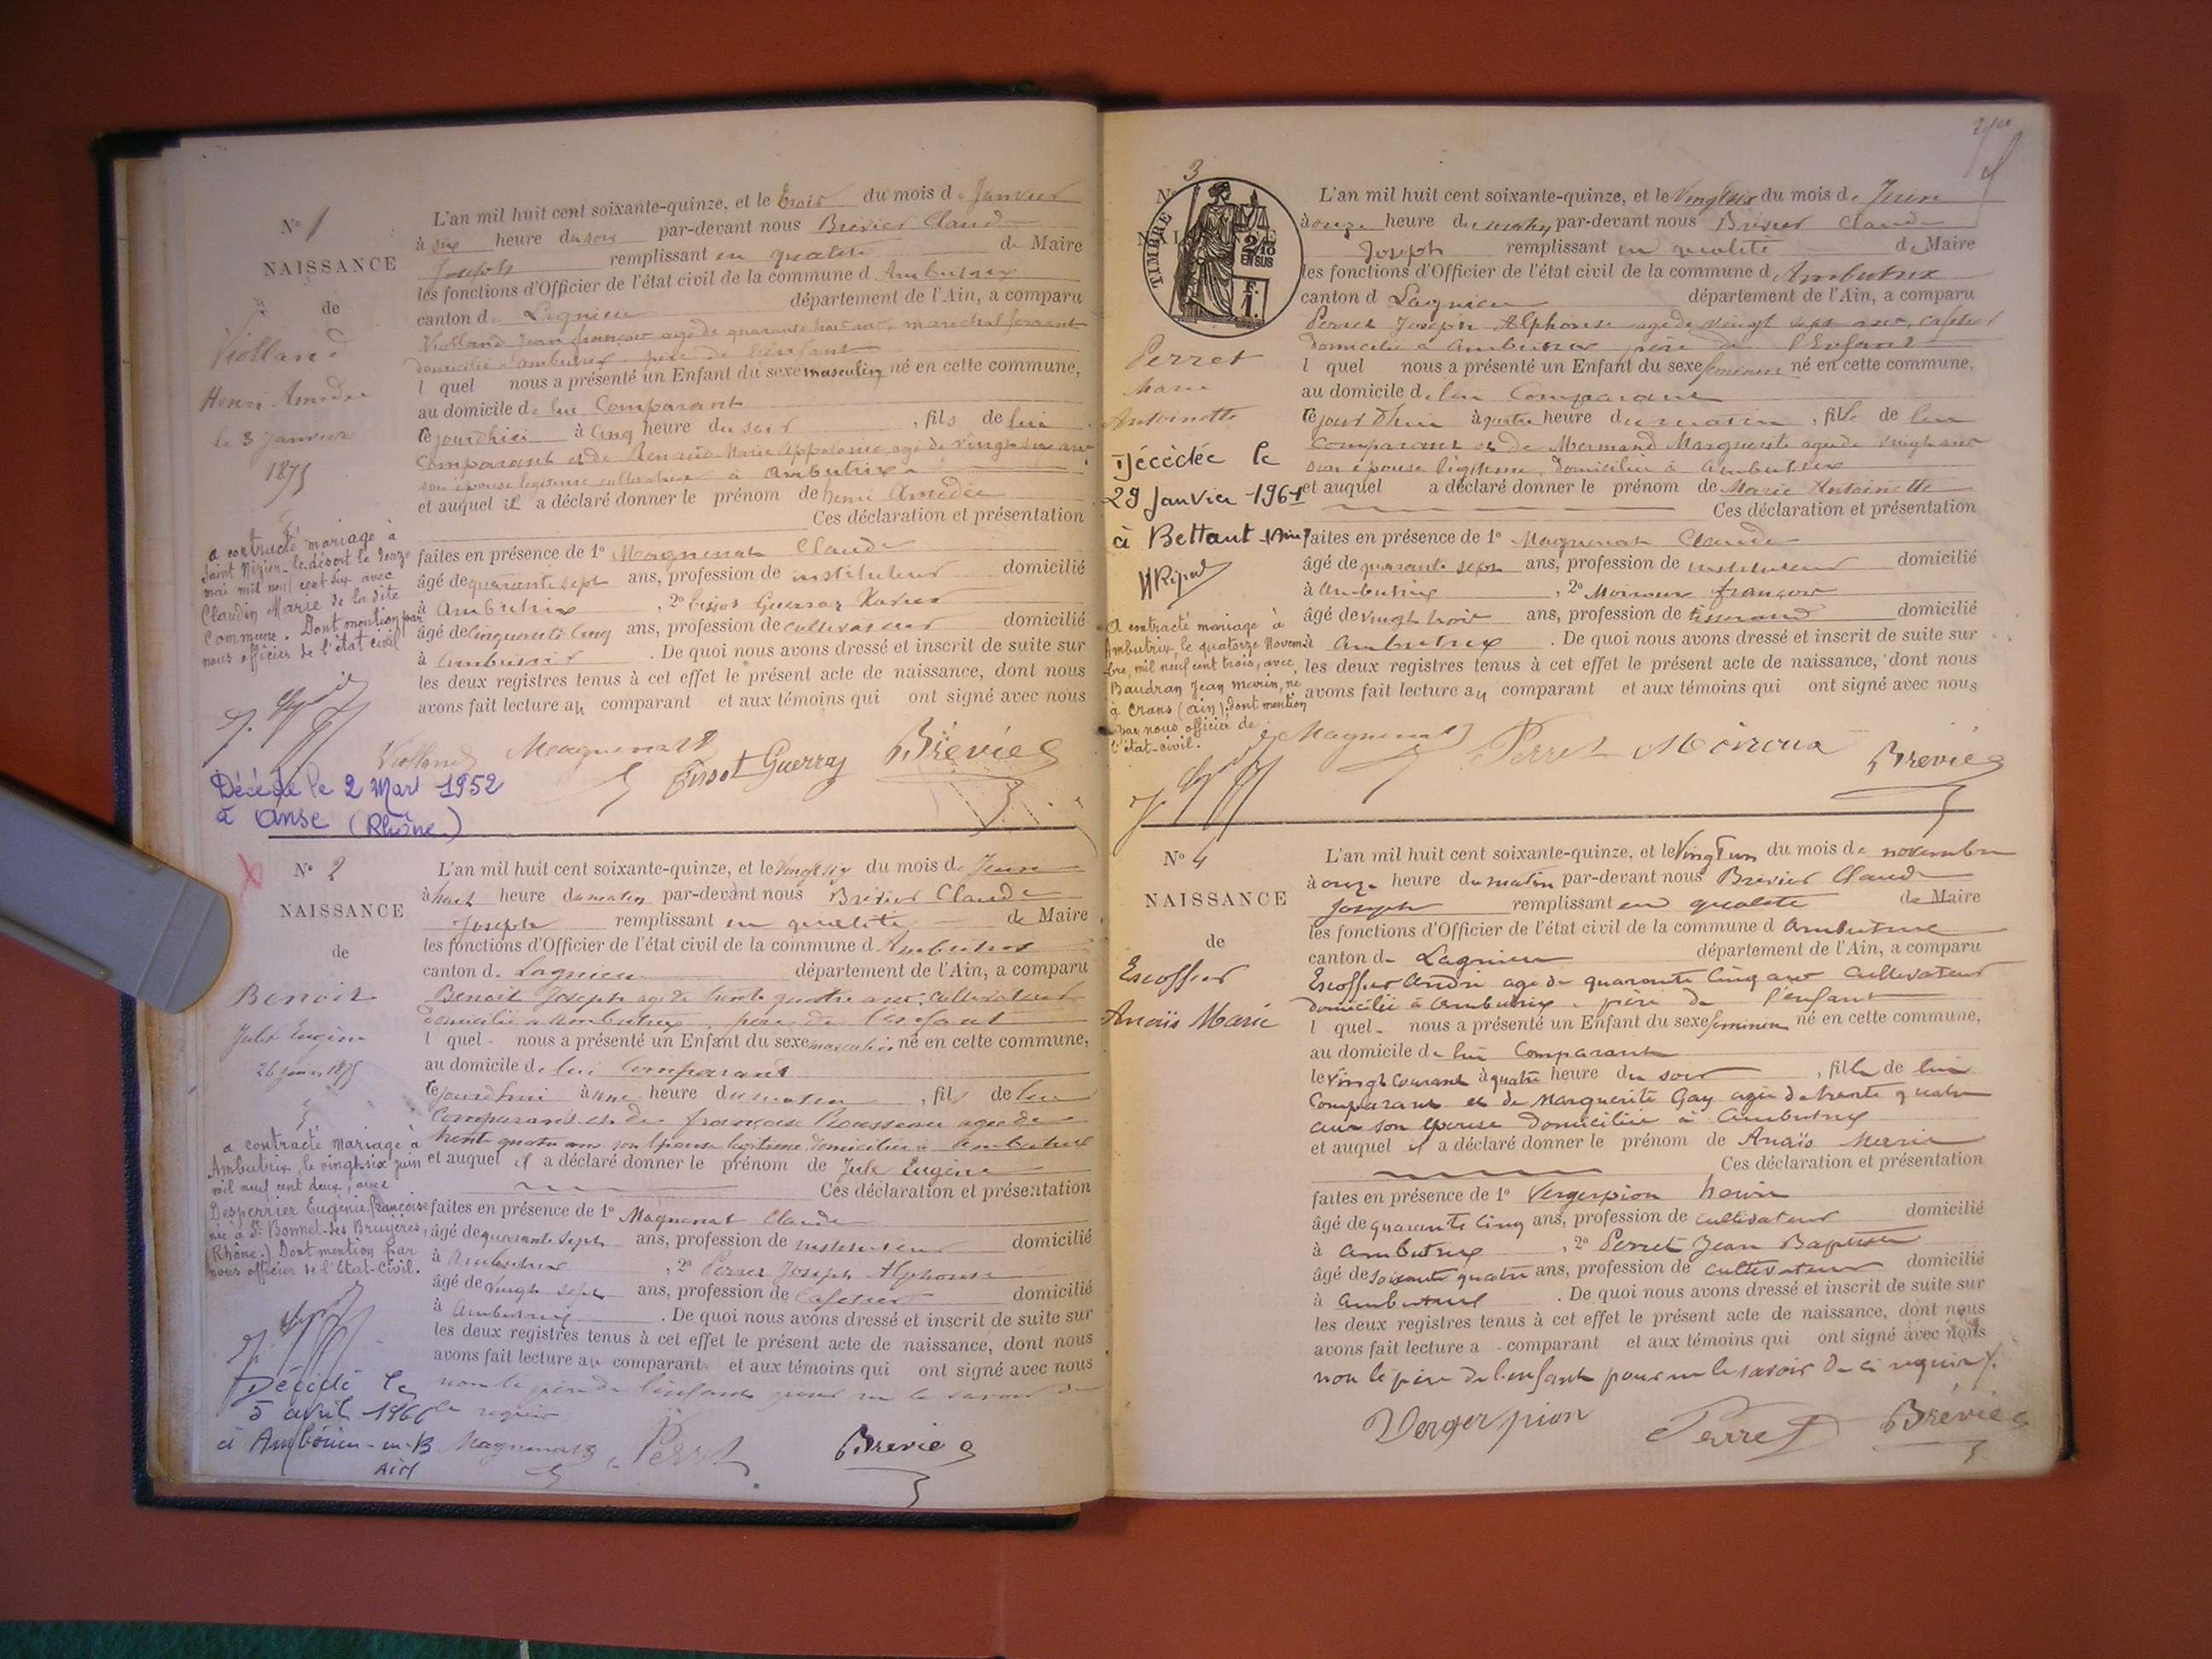 N° 1
NAISSANCE
de
Violland
Henri Amédée
le 3 Janvier
1875
L'an mil huit cent soixante-quinze, et le trois du mois de Janvier
à six heure du soir par-devant nous Brévier Claude
Joseph remplissant en qualité de Maire
les fonctions d'Officier de l'état civil de la commune d Ambutrix
canton de Lagnieu département de l'Ain, a comparu
Violland Jean françois agé de quarante ans, maréchal ferrant
domicilié à Ambutrix père de l'enfant
l quel nous a présenté un Enfant du sexe masculin né en cette commune,
au domicile de lui Comparant
le jourdhui à Cinq heure du soir , fils de lui
Comparant et de Renaud Marie Appolonie agé de vingt six ans
son épouse légitime cultivatrice à Ambutrix
et auquel il a déclaré donner le prénom de henri Amédée
Ces déclaration et présentation
faites en présence de 1° Magnenat Claude
âgé de quarante sept ans, profession de instituteur domicilié
à Ambutrix , 2° tissot Guerraz Xavier
âgé de Cinquante Cinq ans, profession de cultivateur domicilié
à Ambutrix . De quoi nous avons dressé et inscrit de suite sur
les deux registres tenus à cet effet le présent acte de naissance, dont nous
avons fait lecture au comparant et aux témoins qui ont signé avec nous
a contracté mariage à
Saint Nizier-le-désert le douze
mai mil neuf cent six avec
Claudin Marie de la dite
Commune. Dont mention par
nous officier de l'état civil
Violland Magnenat
Tissot Guerraz Brévier
Décédé le 2 Mars 1952
à Anse (Rhône)
N° 2
NAISSANCE
de
Benoit
Jules Eugène
26 juin 1875
L'an mil huit cent soixante-quinze, et le Vingt six du mois de Juin
à huit heure du matin par-devant nous Brévier Claude
Joseph remplissant en qualité de Maire
les fonctions d'Officier de l'état civil de la commune d Ambutrix
canton de Lagnieu département de l'Ain, a comparu
Benoit Joseph agé de trente quatre ans, Cultivateur
domicilié à Ambutrix père de l'enfant
l quel nous a présenté un Enfant du sexe masculin né en cette commune,
au domicile de lui Comparant
le jourdhui à une heure du matin , fils de lui
Comparant et de françoise Rousseau agée de
trente quatre ans son épouse légitime domiciliée à Ambutrix
et auquel il a déclaré donner le prénom de Jule Eugène
Ces déclaration et présentation
faites en présence de 1° Magnenat Claude
âgé de quarante sept ans, profession de instituteur domicilié
à Ambutrix , 2° Perret Joseph Alphonse
âgé de vingt sept ans, profession de Cafetier domicilié
à Ambutrix . De quoi nous avons dressé et inscrit de suite sur
les deux registres tenus à cet effet le présent acte de naissance, dont nous
avons fait lecture au comparant et aux témoins qui ont signé avec nous
non le père de l'enfant pour ne le savoir de
ce requis
a contracté mariage à
Ambutrix, le vingt-six juin
mil neuf cent deux, avec
Desperrier Eugénie françoise
née à St-Bonnet-des-Bruyères,
(Rhône.) Dont mention par
nous officier de l'Etat-Civil.
Décédé le
5 avril 1966
à Ambérieu-en-B
Ain
Magnenat Perret Brévier
N° 3
TIMBRE
2/10
EN SUS
F.
1.
Perret
Marie
Antoinette
L'an mil huit cent soixante-quinze, et le Vingt six du mois de Juin
à onze heure du matin par-devant nous Brévier Claude
Joseph remplissant en qualité de Maire
les fonctions d'Officier de l'état civil de la commune d Ambutrix
canton d Lagnieu département de l'Ain, a comparu
Perret Joseph Alphonse agé de vingt sept ans, cafetier
domicilié à Ambutrix père de l'Enfant
l quel nous a présenté un Enfant du sexe féminin né en cette commune,
au domicile de lui Comparant
le jour d'hui à quatre heure du matin , fille de lui
Comparant et de Mermand Marguerite agée de vingt ans
son épouse légitime, domiciliée à Ambutrix
et auquel a déclaré donner le prénom de Marie Antoinette
Ces déclaration et présentation
faites en présence de 1° Magnenat Claude
âgé de quarante sept ans, profession de instituteur domicilié
à Ambutrix , 2° Moiroux françois
âgé de vingt trois ans, profession de tisserand domicilié
à Ambutrix . De quoi nous avons dressé et inscrit de suite sur
les deux registres tenus à cet effet le présent acte de naissance, dont nous
avons fait lecture au comparant et aux témoins qui ont signé avec nous
Décédée le
29 Janvier 1961
à Bettant (Ain)
A contracté mariage à
Ambutrix, le quatorze Novem-
bre, mil neuf cent trois, avec
Baudran Jean Marin, né
à Crans (Ain). dont mention
par nous officier de
l'état-civil.
Magnenat Perret Moiroux Brévier
N° 4
NAISSANCE
de
Escoffier
Anaïs Marie
L'an mil huit cent soixante-quinze, et le Vingt un du mois de novembre
à onze heure du matin par-devant nous Brévier Claude
Joseph remplissant en qualité de Maire
les fonctions d'Officier de l'état civil de la commune d Ambutrix
canton de Lagnieu département de l'Ain, a comparu
Escoffier André agé de quarante Cinq ans Cultivateur
domicilié à Ambutrix, père de l'enfant
l quel nous a présenté un Enfant du sexe féminin né en cette commune,
au domicile de lui Comparant
le vingt Courant à quatre heure du soir , fille de lui
Comparant et de Marguerite Gay agée de trente quatre
ans son épouse domiciliée à Ambutrix
et auquel il a déclaré donner le prénom de Anaïs Marie
Ces déclaration et présentation
faites en présence de 1° Vergerpion henri
âgé de quarante Cinq ans, profession de cultivateur domicilié
à Ambutrix , 2° Perret Jean Baptiste
âgé de soixante quatre ans, profession de cultivateur domicilié
à Ambutrix . De quoi nous avons dressé et inscrit de suite sur
les deux registres tenus à cet effet le présent acte de naissance, dont nous
avons fait lecture a comparant et aux témoins qui ont signé avec nous
non le père de l'enfant pour ne le savoir de ce requis.
Vergerpion Perret Brévier